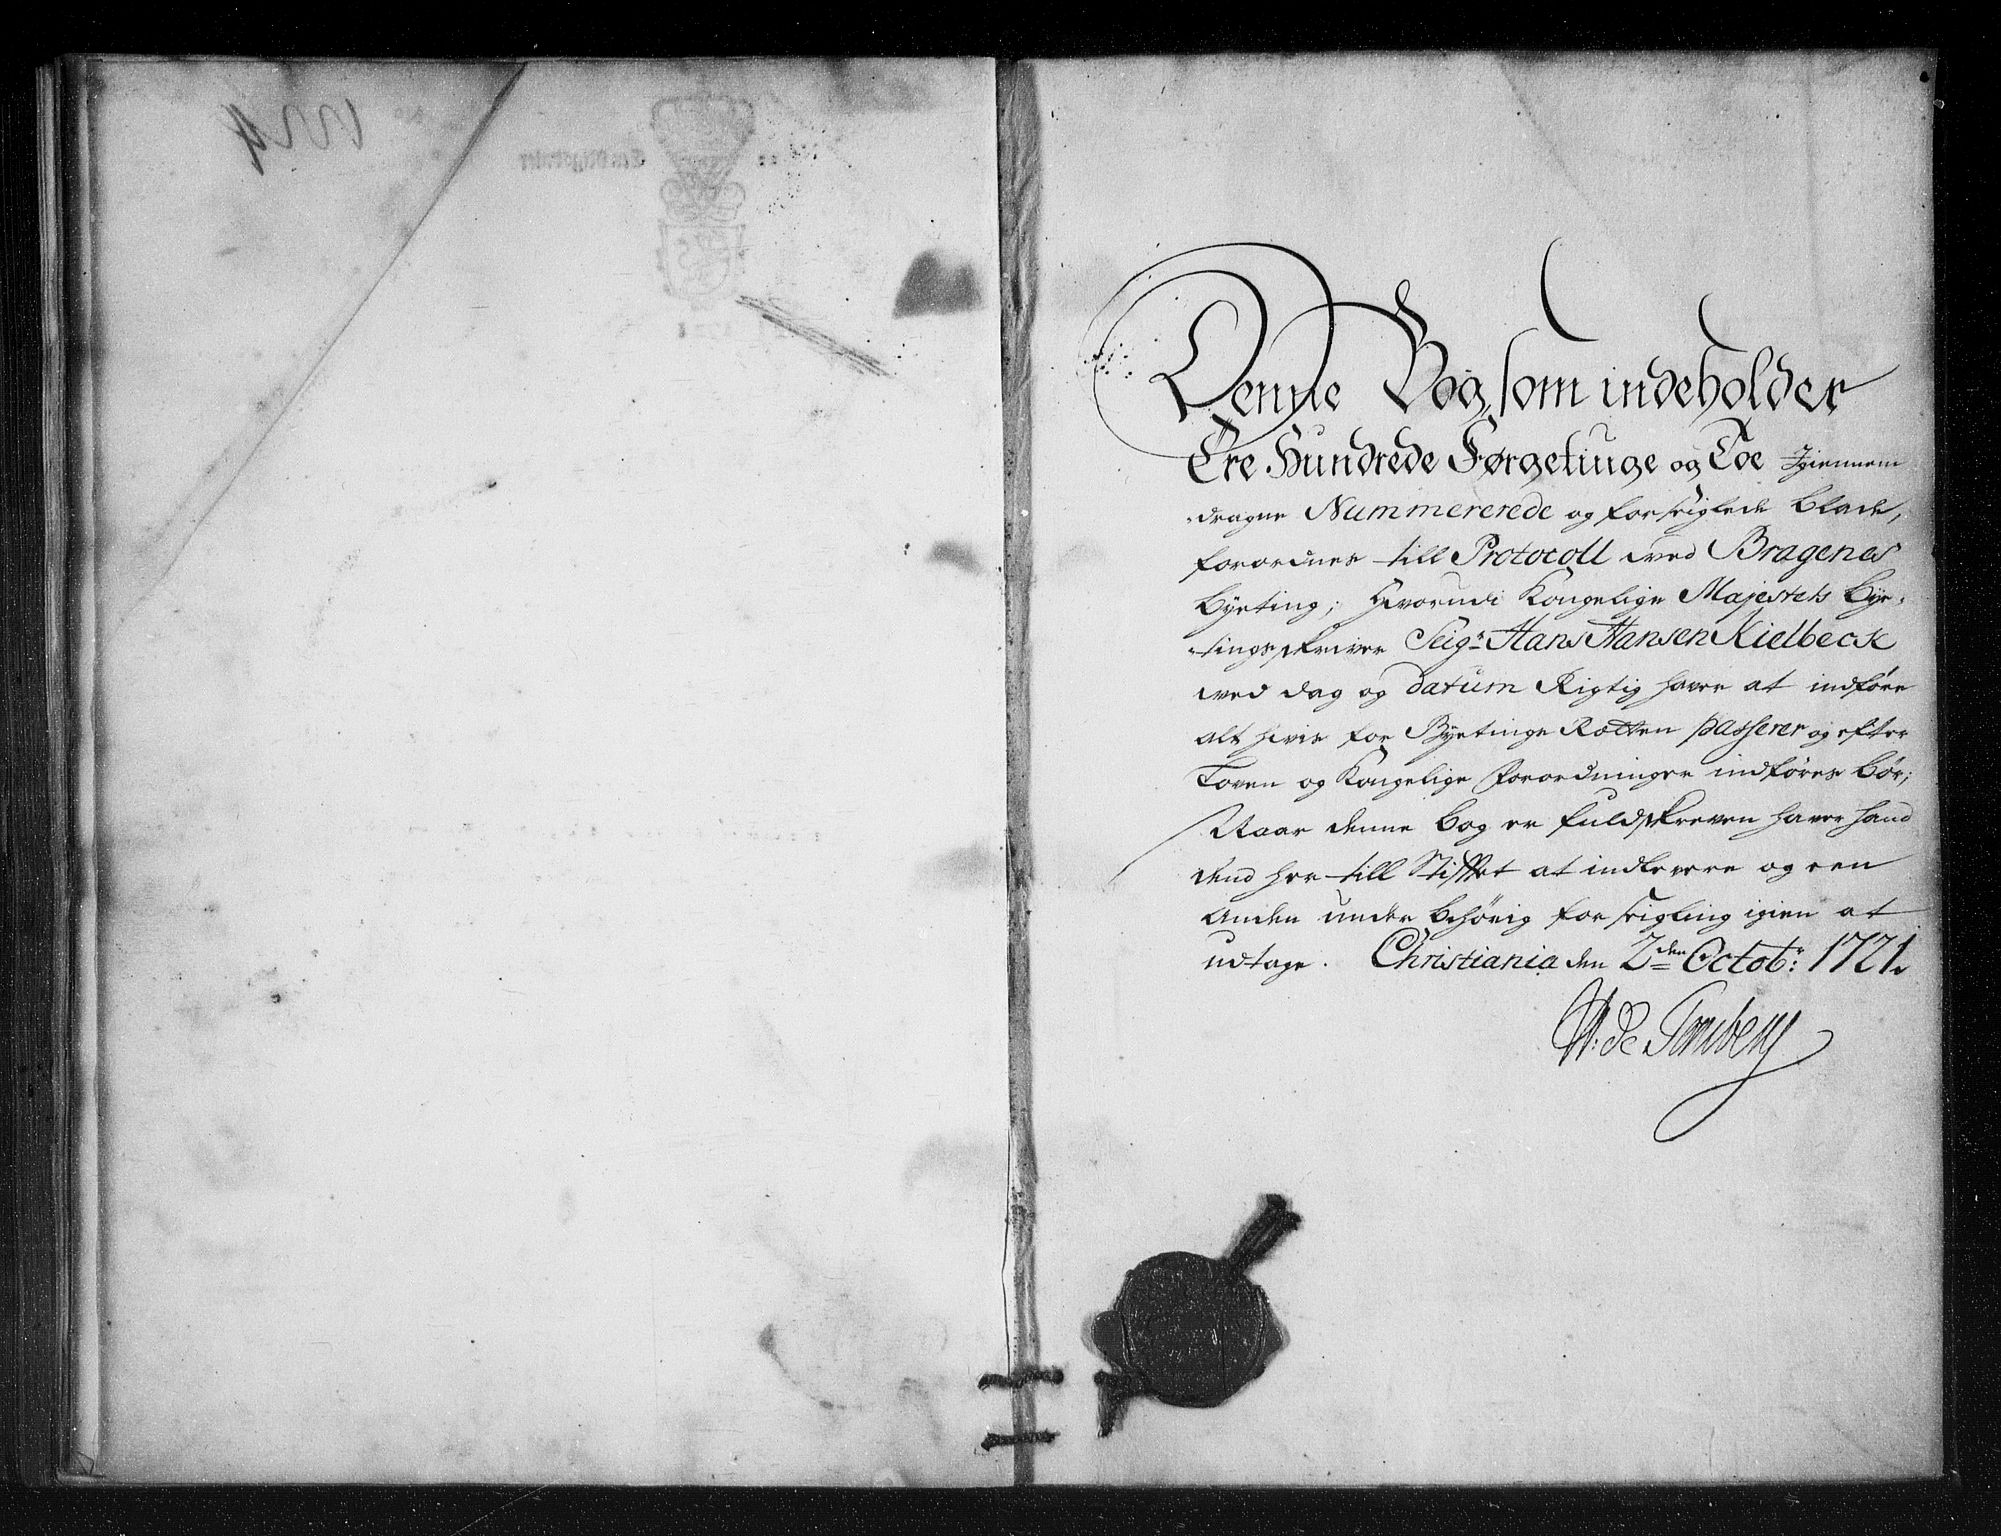 Denne Bog, som indeholder
Tre Hundrede Førgetiuge og Toe Igiennem
dragne Nummererede og forseiglede blade,
forordnes till Protocoll wed Bragenes
byeting; hvorudi Kongelige Majestets bye-
-tingsskriver Seigr: Hans Hansen Kielbeck
wed dag og datum Rigtig haver at indføre
alt hvis for Byetings Rætten passerer og efter
Loven og Kongelige forordninger indføres bør;
Naar denne bog er fuldskreven haver hand
dend her till Stifftet at indlevere og een
anden under behørig forseigling igien at
udtage. Christiania den 2den Octobr: 1721.
W: de Tonsberg